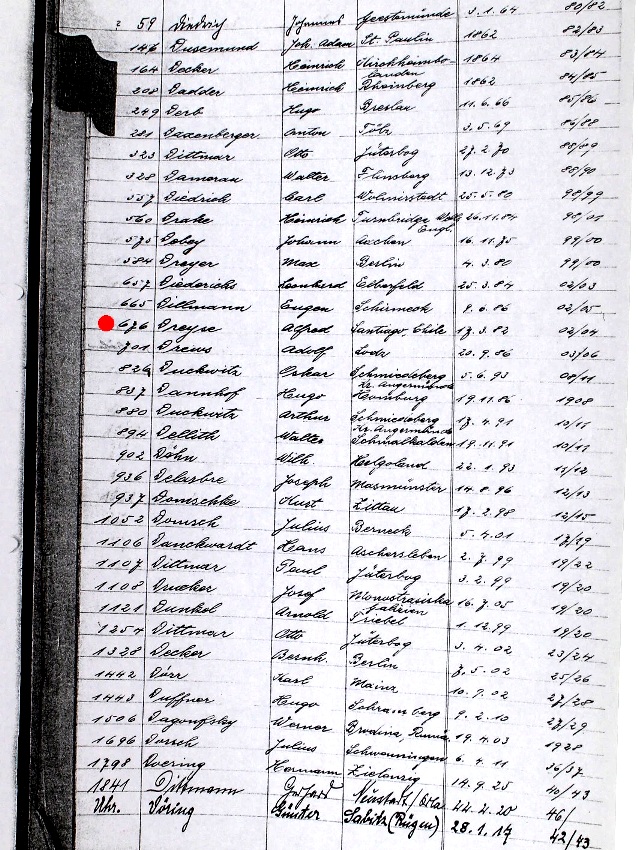 59 Diedrich Johannes Geestemünde 3.1.64 80/82
146 Dusemund Joh. Adam St. Paulin 1862 82/83
164 Decker Heinrich Kirchheimbo-landen 1864 83/84
208 Dadder Heinrich Rheinberg 1862 84/85
249 Derb Hugo Breslau 11.6.66 85/86
281 Daxenberger Anton Tölz 3.5.69 86/88
323 Dittmar Otto Jüterbog 27.2.70 88/89
328 Damerau Walter Flensberg 13.12.73 88/90
557 Diedrich Carl Wolmirstedt 25.5.80 98/99
560 Drake Heinrich Turnbridge Wells Engl. 26.11.84 98/01
575 Dobey Johann Aachen 16.11.75 99/00
584 Dreyer Max Berlin 4.3.80 99/00
657 Diederichs Leonhard Elberfeld 25.3.84 02/03
665 Dillmann Eugen Schirmeck 9.6.86 02/05
676 Dreyse Alfred Santiago, Chile 17.3.82 02/04
701 Drews Adolf Lodz 20.9.86 03/06
826 Duckwitz Oskar Schmiedeberg Kr. Angermünde 5.6.93 08/11
837 Dannhof Hugo Homburg 19.11.86 1908
880 Duckwitz Arthur Schmiedeberg Kr. Angermünde 17.4.91 10/11
894 Dellith Walter Schmalkalden 19.11.91 10/11
902 Döhn Wilh. Helgoland 22.1.93 11/12
936 Delarbre Joseph Masmünster 14.8.96 12/13
937 Domschke Kurt Zittau 17.2.98 12/15
1052 Domsch Julius Berneck 5.4.01 17/19
1106 Danckwardt Hans Aschersleben 2.7.99 19/22
1107 Dittmar Paul Jüterbog 3.2.99 19/20
1108 Josef 16.7.05 19/20
1121 Dunkel Arnold Triebel 1.12.99 19/20
1254 Dittmar Otto Jüterbog 3.4.02 23/24
1328 Decker Bernh. Berlin 7.5.02 25/26
1442 Dörr Karl Mainz 10.9.02 27/28
1443 Duffner Hugo Schramberg 9.2.10 27/29
1506 Werner Brodina, 19.4.03 1928
1696 Dorsch Julius Schwenningen 6.4.11 36/37
1798 Doering Hermann Zielenzig 14.9.25 40/43
1841 Dittmann Gerhard Neustadt/Orla 22.2.20 46/
Uhr. Döring Günter Sabitz (Rügen) 28.1.17 42/43